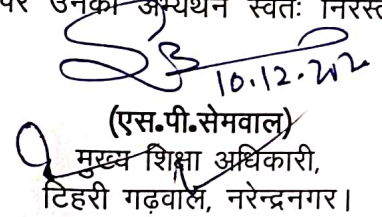 पर उनका अभ्यर्थन स्वतः निरस्त
10.12.202
(एस.पी.सेमवाल)
मुख्य शिक्षा अधिकारी,
टिहरी गढ़वाल, नरेन्द्रनगर।